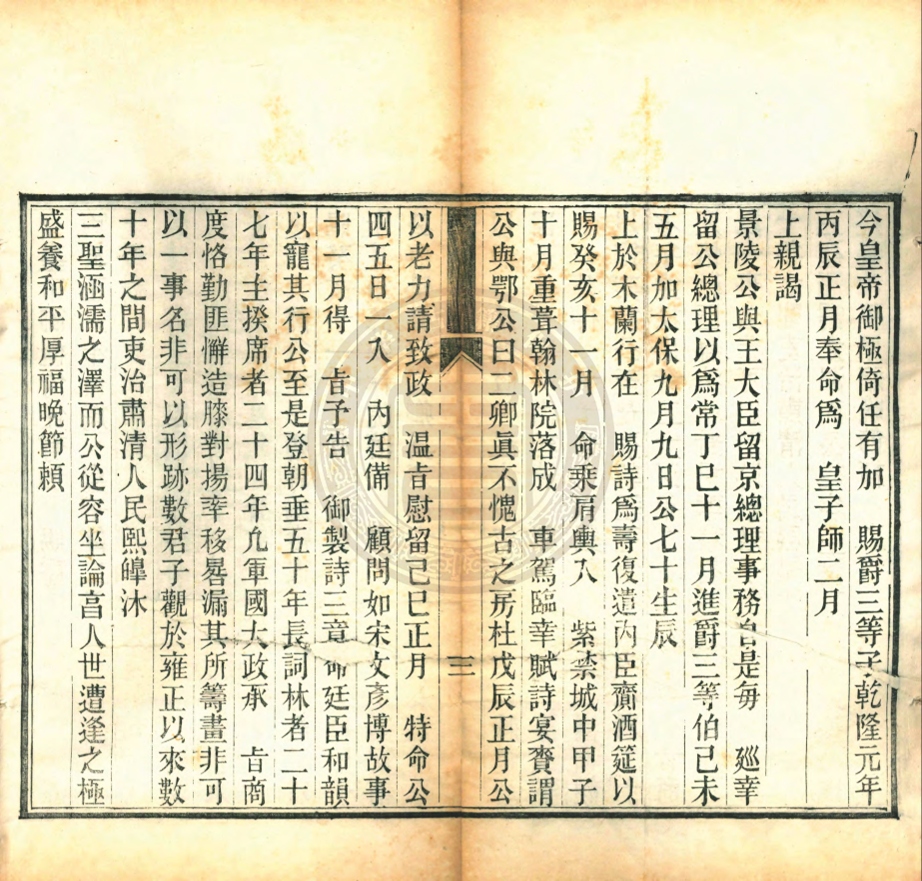 今皇帝御極倚任有加　賜爵三等子乾隆元年
丙辰正月奉命爲　皇子師二月
上親謁
景陵公與王大臣留京總理事務自是每　廵幸
留公總理以爲常丁巳十一月進爵三等伯已未
五月加太保九月九日公七十生辰
上於木蘭行在　賜詩爲壽復遣内臣齎酒筵以
賜癸亥十一月　命乘肩輿入　紫禁城中甲子
十月重葺翰林院落成　車駕臨幸賦詩宴賚謂
公與鄂公曰二卿眞不愧古之房杜戊辰正月公
三
以老力請致政　温旨慰留己巳正月　特命公
四五日一入　内廷備　顧問如宋文彦博故事
十一月得　旨予告　御製詩三章命廷臣和韻
以寵其行公至是登朝垂五十年長詞林者二十
七年主揆席者二十四年凡軍國大政承　旨商
度恪勤匪懈造膝對揚率移晷漏其所籌畫非可
以一事名非可以形跡數君子觀於雍正以來數
十年之間吏治肅清人民熙皥沐
三聖涵濡之澤而公從容坐論宫人世遭逢之極
盛養和平厚福晚節頼